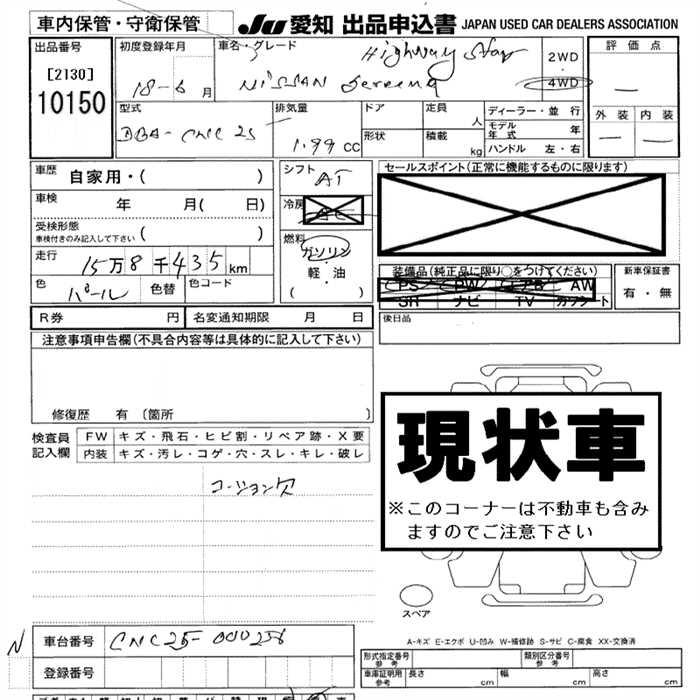 車内保管・守衛保管
JU 愛知 出品申込書 JAPAN USED CAR DEALERS ASSOCIATION
出品番号
[2130]
10150
初度登録年月
18-6 月
車名・グレード
Highway Star
NISSAN Serena
2WD
・
4WD
評価点
—
外装 内装
— —
型式
DBA-CNC25
排気量
1.99 cc
ドア
定員
人
形状
積載
kg
ディーラー・並行
モデル年式 年
ハンドル 左・右
車歴 自家用・( )
車検 年 月( 日)
受検形態
車検付きのみ記入して下さい ( )
走行 15万8千435km
色 パール 色替 色コード
シフト AT
冷房 AC
燃料
ガソリン
・
軽・油
( )
セールスポイント(正常に機能するものに限ります)
装備品(純正品に限り○をつけてください)
PS PW エアB AW
SR ナビ TV カワシート
新車保証書
有・無
R券 円 名変通知期限 月 日
後日品
注意事項申告欄(不具合内容等は具体的に記入して下さい)
修復歴 有〔箇所 〕
検査員記入欄
FW キズ・飛石・ヒビ割・リペア跡・X要
内装 キズ・汚レ・コゲ・穴・スレ・キレ・破レ
コーション欠
現状車
※このコーナーは不動車も含み
ますのでご注意下さい
スペア
A-キズ E-エクボ U-凹み W-補修跡 S-サビ C-腐食 XX-交換済
N 車台番号 CNC25-000256
登録番号
形式指定番号 参考
類別区分番号 参考
車庫証明用 参考 長さ cm 幅 cm 高さ cm